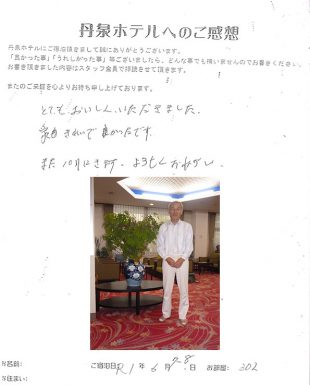 丹泉ホテルへのご感想
丹泉ホテルにご宿泊頂きまして誠にありがとうございます。
「良かった事」「うれしかった事」等ございましたら、どんな事でも構いませんのでお書きください。
お書き頂きました内容はスタッフ全員で拝読させて頂きます。
またのご来館を心よりお待ち申し上げております。
とてもおいしくいただきました。
きれいで良かったです。
また10月にきます。よろしくおねがい。
お名前:
ご宿泊日 R1 年 6 月 7.8 日 お部屋: 302
お住まい: